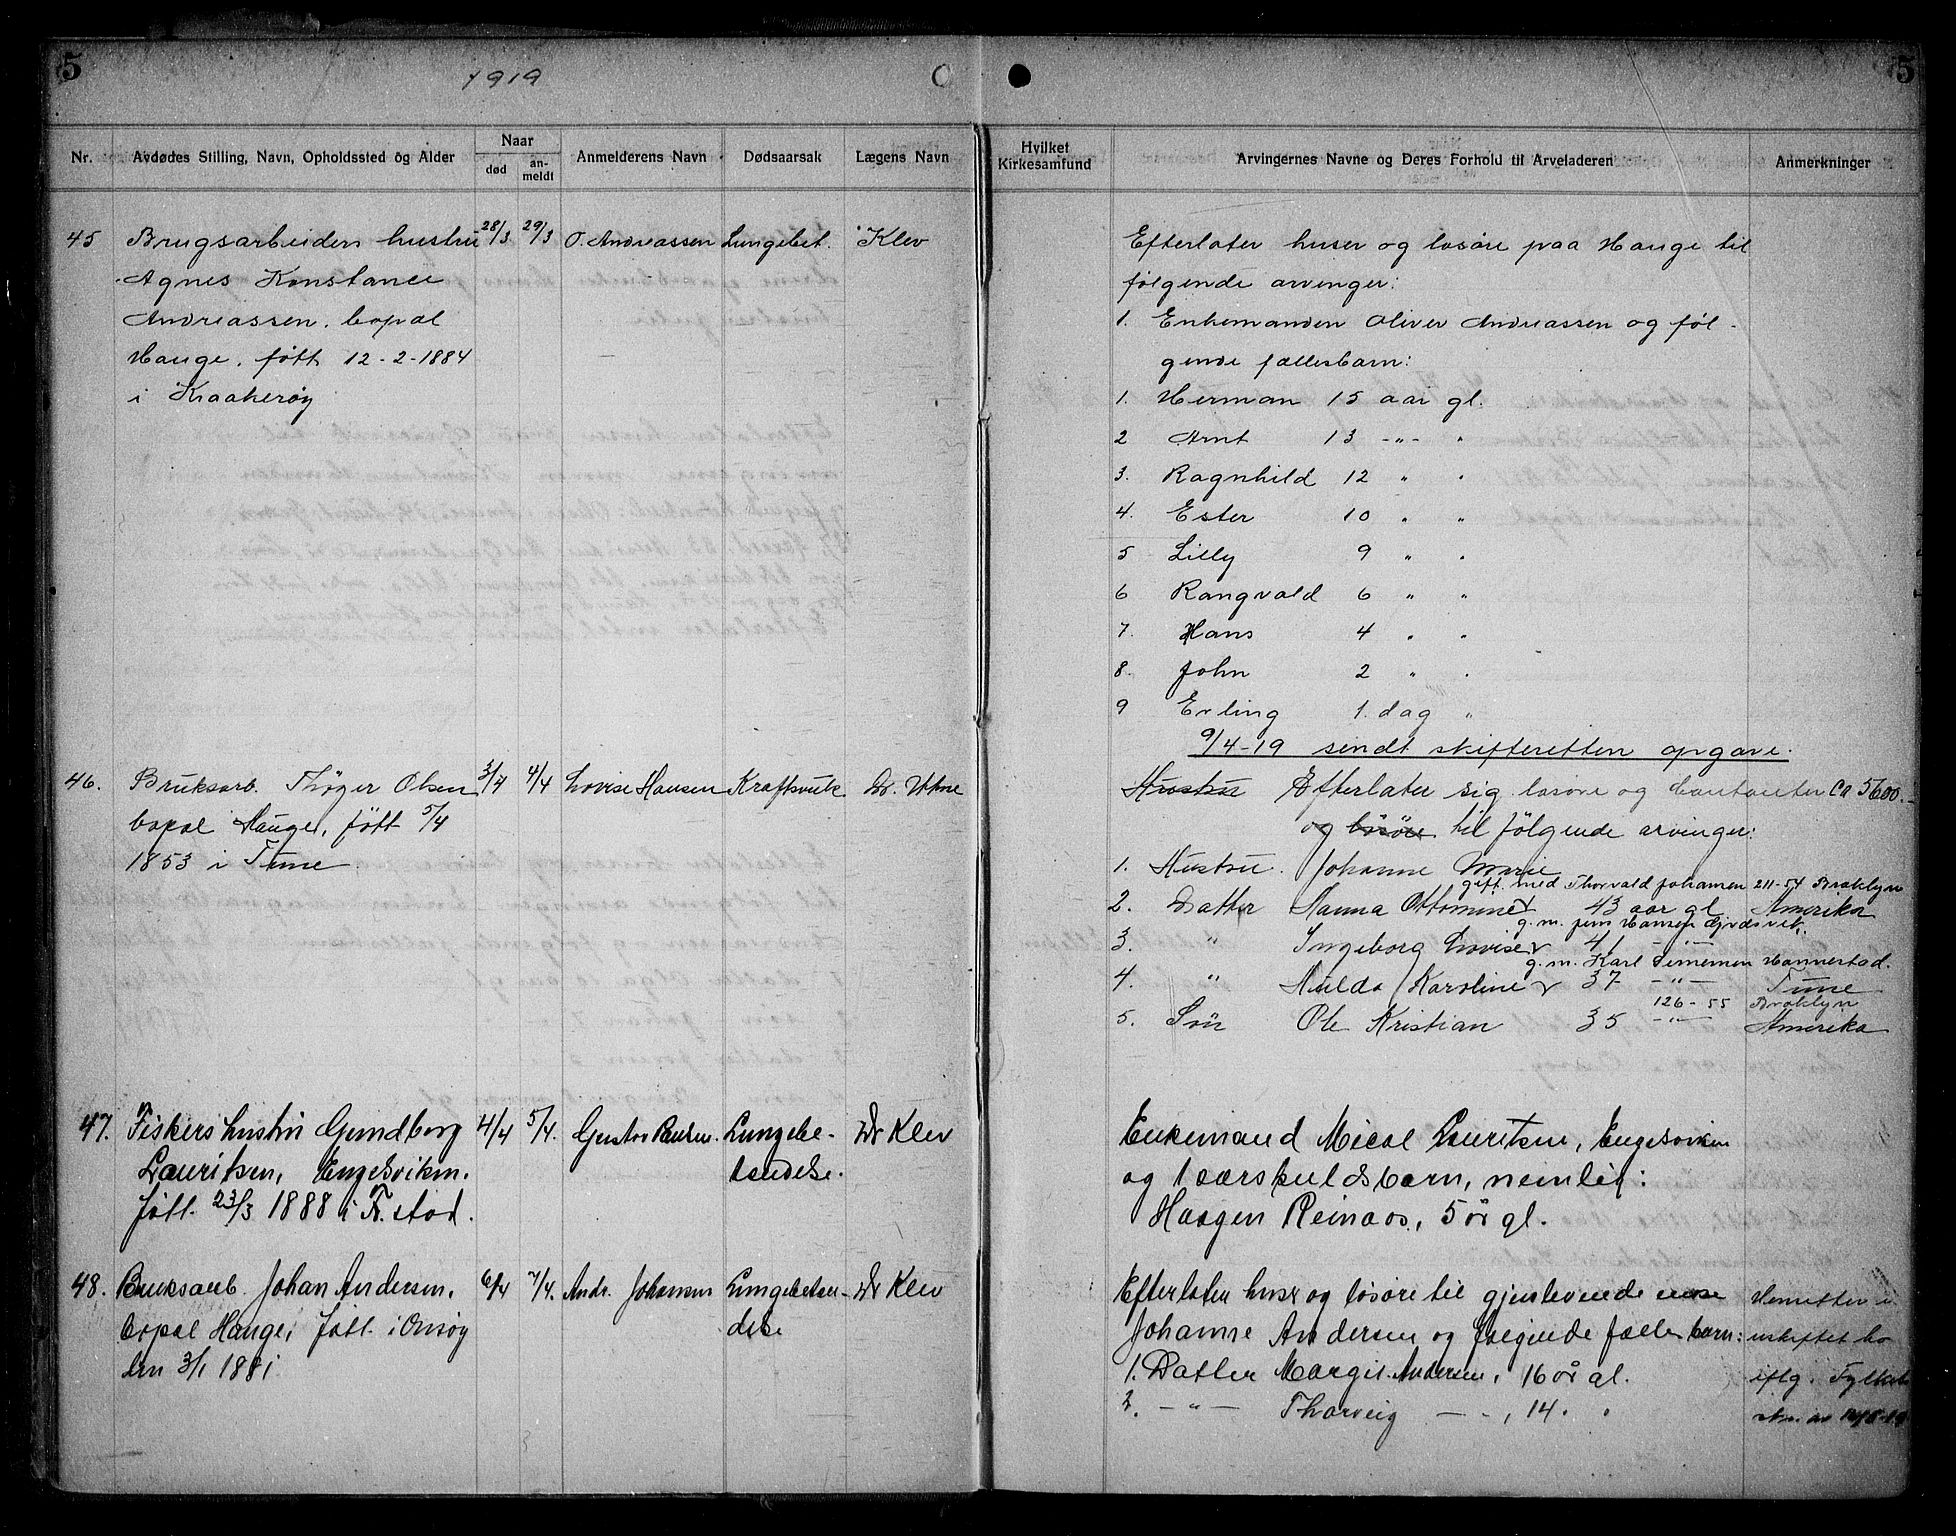 5
1919
5
Nr.
Avdødes Stilling, Navn, Opholdssted og Alder
Naar
død
an-
meldt
Anmelderens Navn
Dødsaarsak
Lægens Navn
Hvilket
Kirkesamfund
Arvingernes Navne og Deres Forhold til Arveladeren
Anmerkninger
45 Brugsarbeiden hustru 28/3 29/3 O. Andreassen Lungebet. Klev
Agnes Konstance
Andreassen. bopæl
Hauge. født 12-2-1884
i Kraakerøy
Efterlater huser og løsøre paa Hauge til
følgende arvinger:
1. Enkemanden Oliver Andreassen og føl-
gende fællesbarn:
1. Herman 15 aar gl.
2 Arnt 13 -"- "
3. Ragnhild 12 " "
4. Ester 10 " "
5 Lilly 9 " "
6 Rangvald 6 " "
7. Hans 4 " "
8. John 2 " "
9 Erling 1. dag "
9/4-19 sendt skifteretten opgave.
46. Bruksarb. Thøger Olsen 3/4 4/4 Lovise Hansen Kraftsvulk Dr. Utne
bopæl Hauge, født 5/4
1853 i Tune
Hustru Efterlater sig løsøre og Contanter ca 5600.-
og løsøre til følgende arvinger:
1. Hustru. Johanne Marie
gift. med Thorvald Johansen 211-54 Broklyn
2. Datter Hanna Ottomine 43 aar gl Amerika
g. m. Jens Hansen
3. " Ingeborg Lovise 41 -"-
g. m. Karl Simensen Hannestad.
4. " Hulda Karoline 37 -"- Tune
126-55 Broklyn
5. Søn Ole Kristian 35 -"- Amerika
47. Fiskers hustru Gundborg 4/4 5/4. Gustav Paulsen. Lungebe- Dr Klev
Lauritsen, Engelsviken. tendelse.
født 23/3 1888 i Fr.stad.
Enkemand Micael Lauritsen, Engelsviken
og 1 særskuldsbarn, nemlig:
Haagen Reinaas, 5 år gl.
48. Bruksarb. Johan Andersen, 6/4 7/4. Andr. Johansen Lungebeten- Dr Klev
bopæl Hauge, født i Onsøy delse
den 3/1 1881
Efterlater huse og løsøre til gjenlevende
Johanne Andersen og følgende fælles barn:
1. Datter Margit Andersen, 16 år gl.
2. -"- Thorveig - - , 14 " "
Hensitter i
uskiftet bo
iflg. Fylkets
skr. av